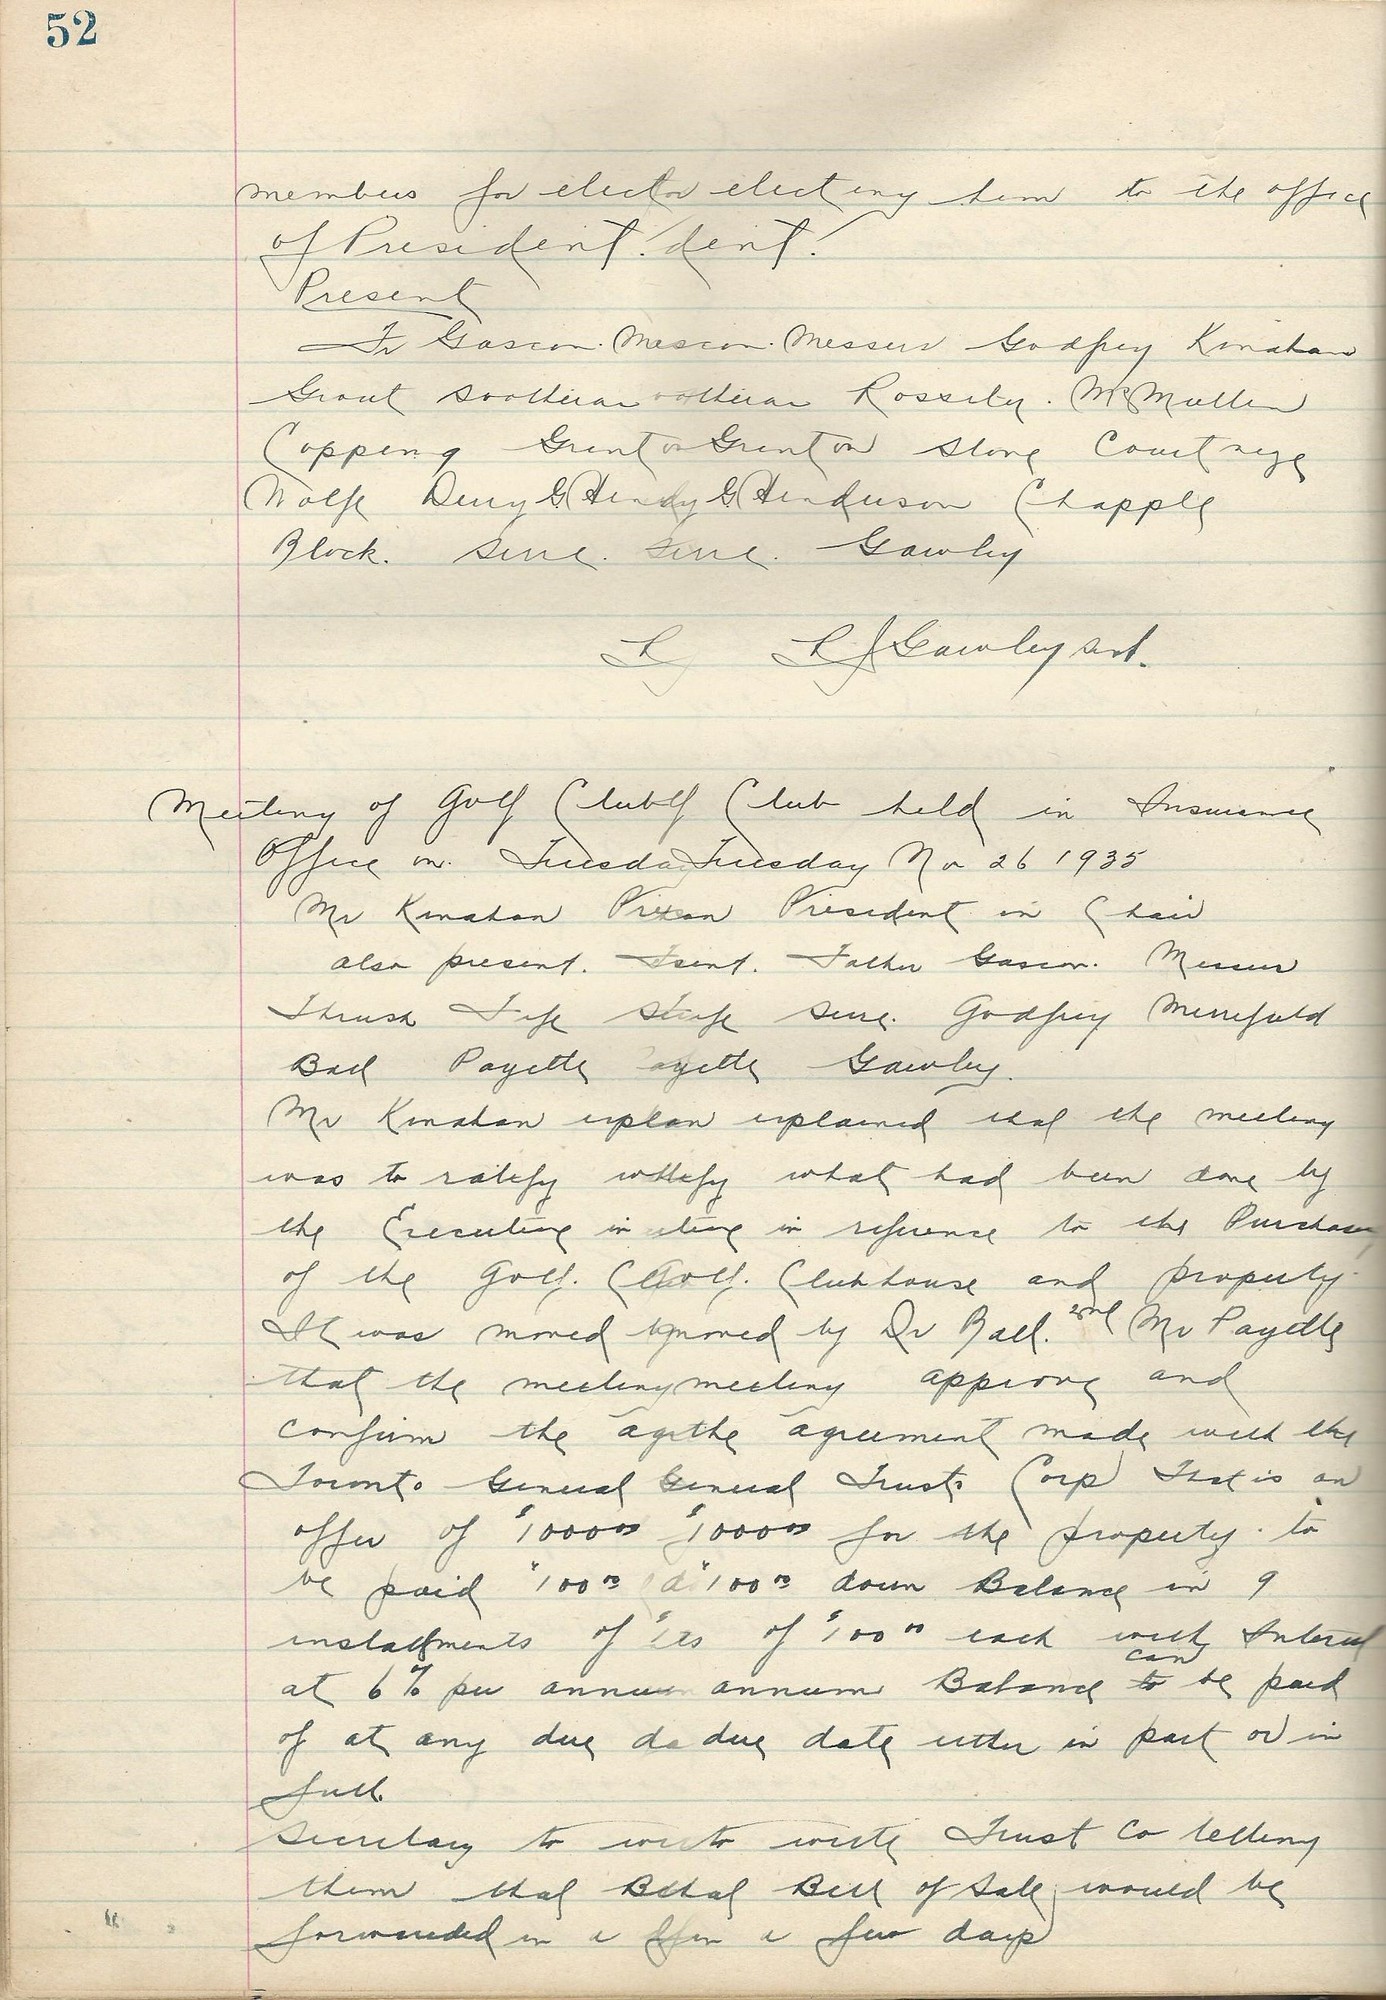 52
members for elector electing him to the office
of President. dent.
Present
Fr Gascon. Mescon. Messers Godfrey Kinahan
Grout Soother oother Rossiter. McMullen
Copping Grenton Grenton Stone Courtnege
Wolfe Deny G Hendy G Henderson Chapple
Block. Sine. Sine. Gawley
L L J Gawley Sect.
Meeting of Golf Clublf Club held in Insurance
Office on. Tuesda Tuesday Nov 26 1935
Mr Kinahan President in Chair
also present. sent. Father Gascon. Messers
Thrush Fife Sine. Godfrey Merrifield
Ball Payette ayette Gawley.
Mr Kinahan explan explained that the meeting
was to ratify what had been done by
the Executive in utive in reference to the Purchase
of the Golf. Golf. Clubhouse and property.
It was moved moved by Dr Ball. 2nd Mr Payette
that the meeting meeting approve and
confirm the agthe agreement made with the
Toronto General General Trusts Corp That is an
offer of $1000.00 $1000.00 for the property. to
be paid $100.00 d $100.00 down Balance in 9
installments of $ ts of $100.00 each with Interest
at 6% per annum annum Balance to can be paid
of at any due da due date either in part or in
full.
Secretary to write Trust Co telling
them that Bthat Bill of Sale would be
forwarded in a few days